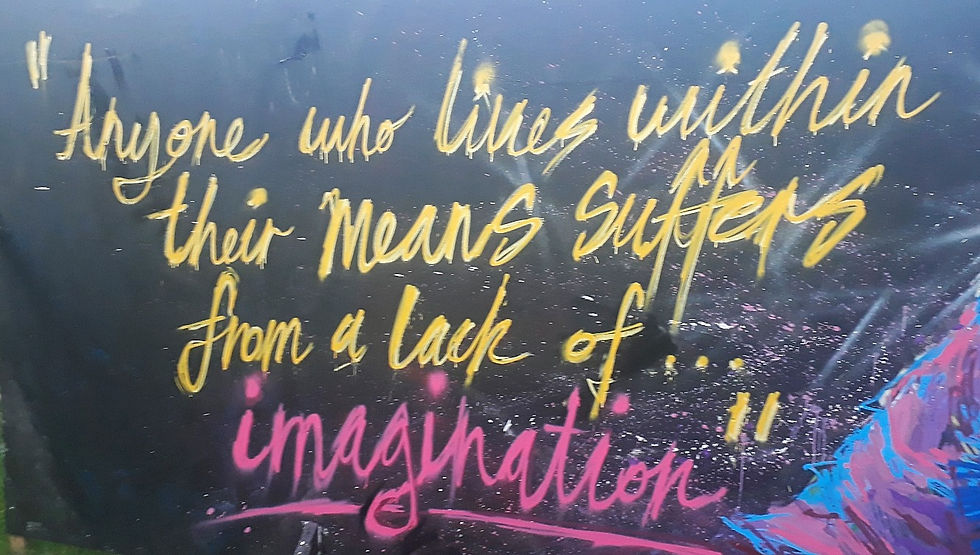 "Anyone who lives within
their means suffers
from a lack of...
imagination"